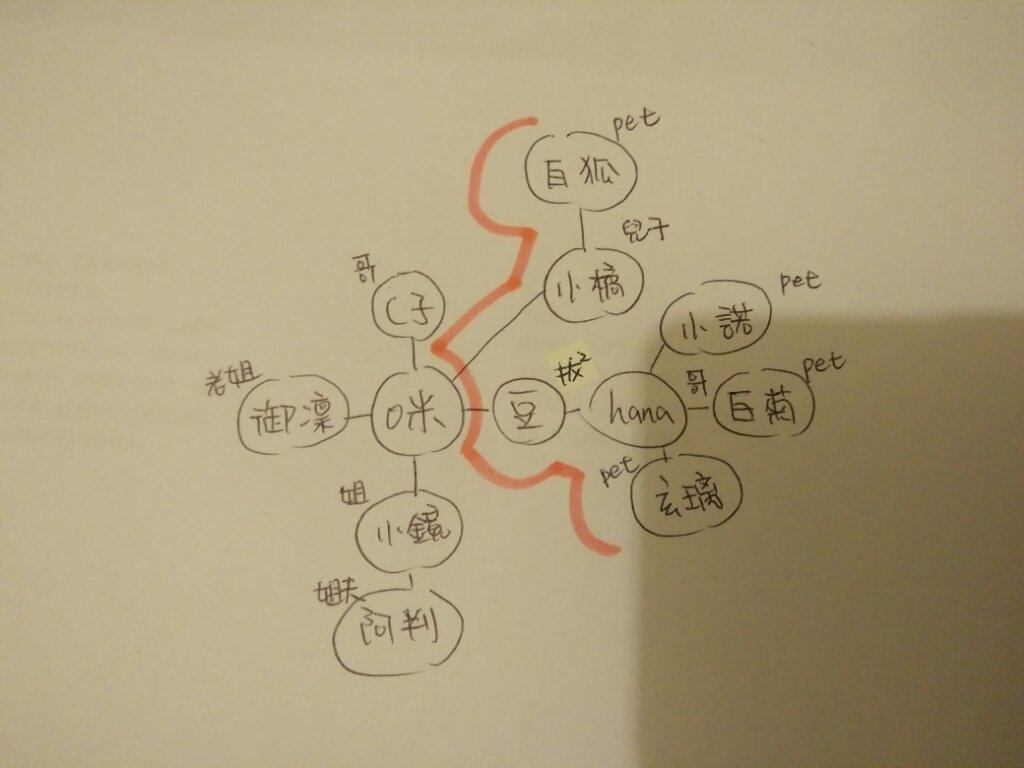 pet
白狐
兒子
小橘
哥
C子
pet
小諾
老姐
御凜
咪
豆
拔²
hana
哥
pet
白菊
pet
玄璃
姐
小鏡
姐夫
阿判